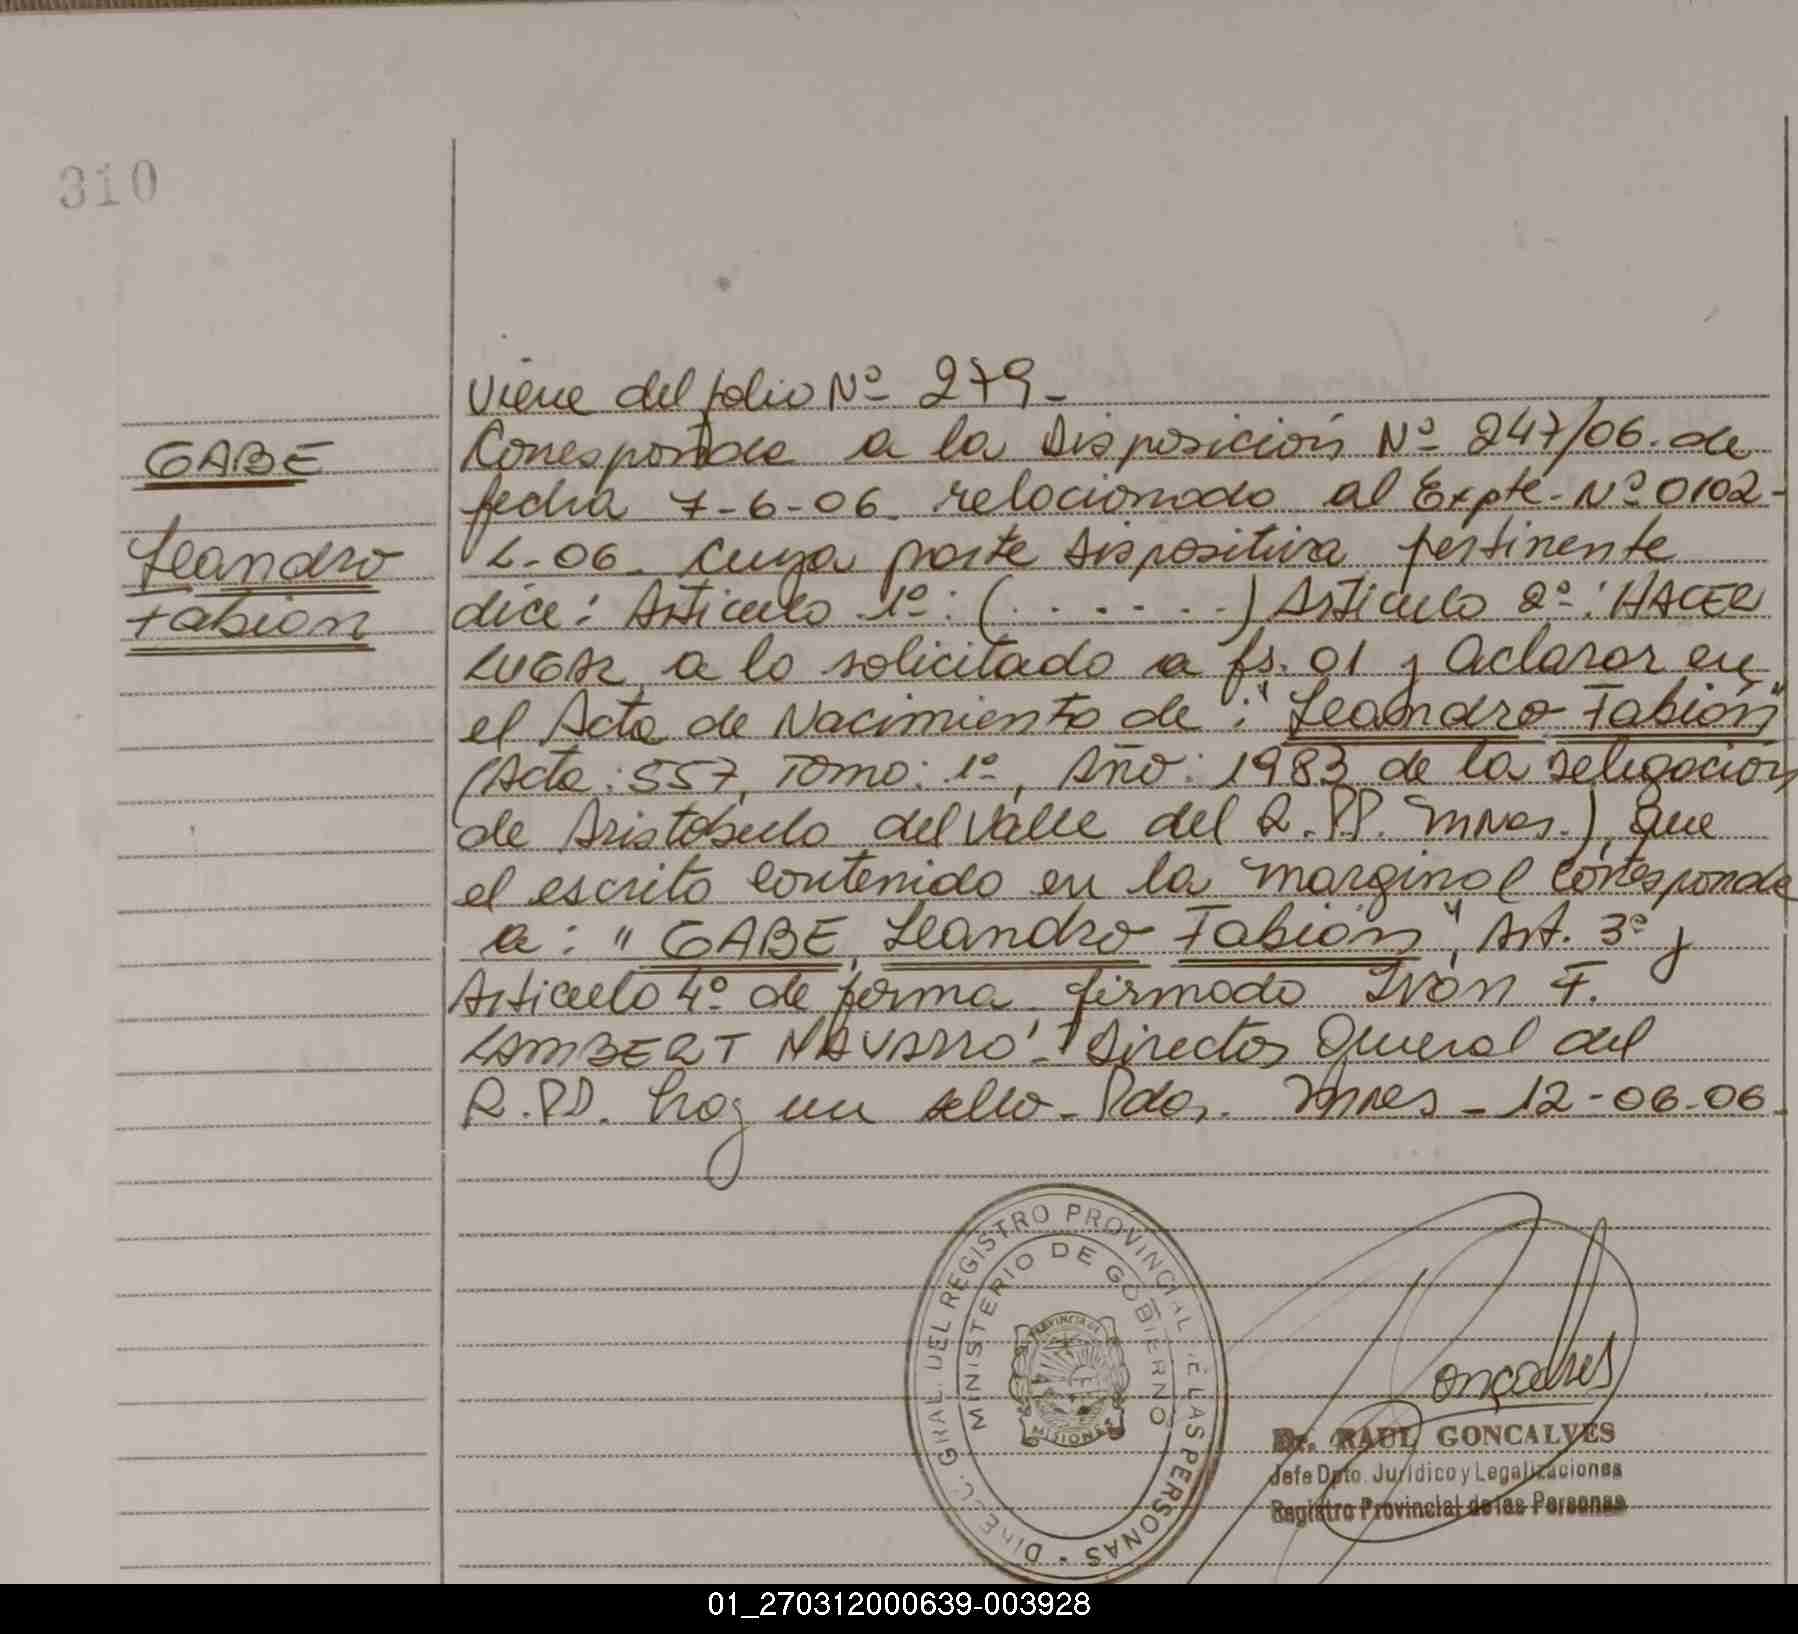 310
Viene del folio Nº 279-
GABE
Leandro
Fabián
Corresponde a la Disposición Nº 247/06. de
fecha 7-6-06. relacionado al Expte- Nº 0102-
L-06. cuya parte dispositiva pertinente
dice: Artículo 1º: (. . . . . . .) Artículo 2º: HACER
LUGAR, a lo solicitado a fs. 01 y aclarar en
el Acta de Nacimiento de: "Leandro Fabián"
(Acta: 557, Tomo: 1º, Año: 1983 de la Delegación
de Aristóbulo del Valle del R.PP. Mnes.), que
el escrito contenido en la marginal corresponde
a: "GABE, Leandro Fabián", Art. 3º y
Artículo 4º de forma. firmado Iván F.
LAMBERT NAVARRO - Director General del
R.PP. hay un sello- Pdas. Mnes - 12-06-06.
DIREC. GRAL. DEL REGISTRO PROVINCIAL DE LAS PERSONAS -
MINISTERIO DE GOBIERNO
PROVINCIA DE
MISIONES
Dr. RAUL GONCALVES
Jefe Dpto. Jurídico y Legalizaciones
Registro Provincial de las Personas
01_270312000639-003928